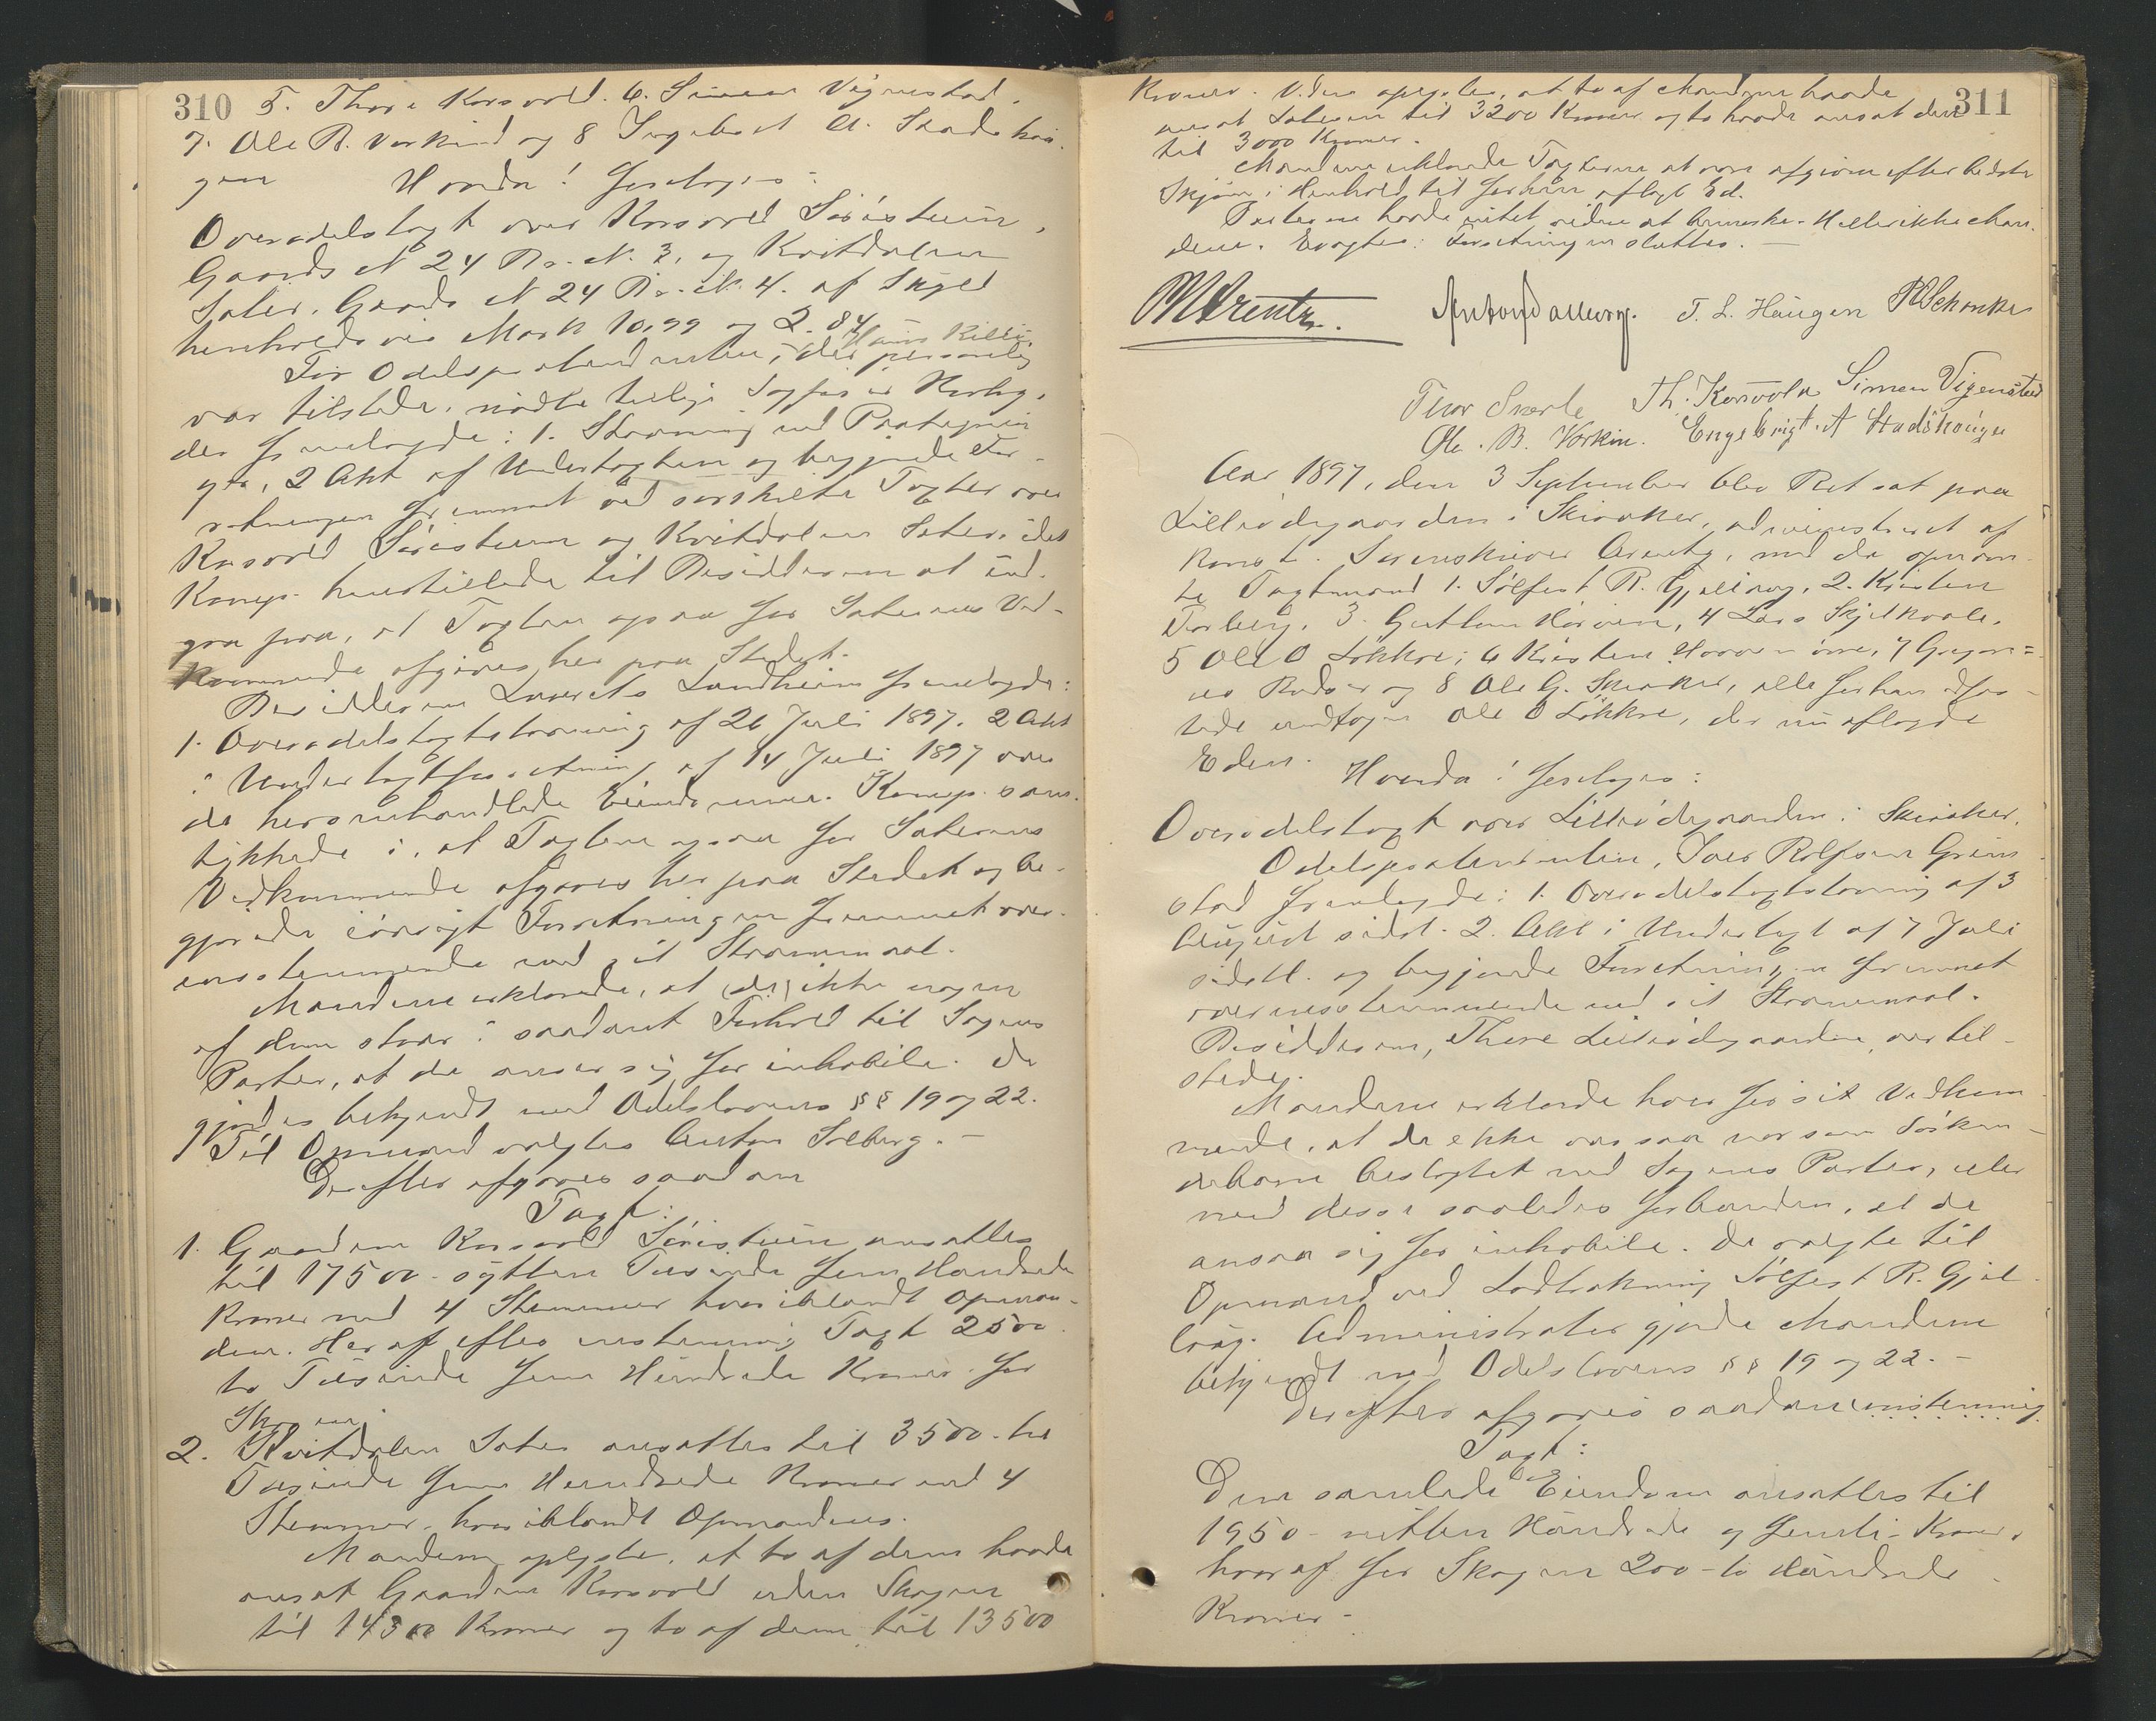 310
5. Thore Korsvold. 6. Simen Vigenstad.
7. Ole B. Vorkind og 8 Ingebrigt A. Stadshau-
gen
Hvorda! foretoges:
Overodelstagt over Korsvold Søristuen,
Gaards N 24 Br. N. 3, og Kvitdalen
Sæter, Gaards N 24 Br. N. 4. af Skyld
henholdsvis Mark 10,99 og 2.84.
For Odelspretendenten, der personlig
var tilstede, mødte tillige Sagfører
der fremlagde: 1. Stævning med Paategnin
ger, 2 Akt af Undertagten og begjærede For-
retningen fremmet ved særskilte Tagter over
Korsvold Søristuen og Kvitdalens Sæter, idet
Komp. henstillede til Besidderen at ind-
gaa paa, at Tagten ogsaa for Sæterens Ved-
kommende afgives her paa Stedet.
Besidderen Laurits Sundheim fremlagde:
1. Overodelstagtstævning af 26 Juli 1897. 2 Akt
i Undertagtforretning af 14 Juli 1897 over
de hersomhandlede Eiendomme. Komp. sam-
tykkede i, at Tagten ogsaa for Sæterens
Vedkommende afgives her paa Stedet og be-
gjærede iøvrigt Forretningen fremmet over-
ensstemmende med sit Stævnemaal.
Mændene erklærede, at (de) ikke nogen
af dem staar i saadant Forhold til Sagens
Parter, at de anser sig for inhabile. De
gjordes bekjendt med Odelslovens §§ 19 og 22.
Til Opmand valgtes Anton Solberg. —
Derefter afgaves saadan
Tagt:
1. Gaarden Korsvold Søristuen ansattes
til 17500 - sytten Tusinde fem Hundrede
Kroner med 4 Stemmer hvoriblandt Opman-
dens. Heraf efter enstemmig Tagt 2500
to Tusinde fem Hundrede Kroner for
Skogen.
2. Kvitdalen Sæter ansattes til 3500 - tre
Tusinde fem Hundrede Kroner med 4
Stemmer, hvoriblandt Opmandens.
Mændene oplyste, at to af dem havde
ansat Gaarden Korsvold uden Skogen
til 14300 Kroner og to af dem til 13500
311
Kroner. Videre oplystes, at to af Mændene havde
ansat Sæteren til 3200 Kroner og to havde ansat den
til 3000 Kroner.
Mændene erklærede Tagterne at være afgivne efter bedste
Skjøn i Henhold til forhen aflagt Ed.
Parterne havde intet videre at bemærke. Heller ikke Mæn-
dene. Vragtes: Forretningen sluttes. —
Arentz. Anton Solberg. T. L. Haugen
Thor Th. Korsvold Simen Vigenstad
Ole. B. Vorkin. Engebrigt A Stadshøugen
Aar 1897, den 3 September blev Ret sat paa
Lillerødegaarden i Skiaker, administreret af
konst. Sorenskriver Arentz, med de opnævn-
te Tagtmænd 1. Sølfest R. Gjeilaag, 2. Kristen
Forberg, 3. Guttorm Hørven, 4 Lars Skjelkvale,
5 Ole O Løkkre, 6 Kristen, 7 Gregori-
us og 8 Ole G. Skiaker, alle forhen edfæ-
stede undtagen Ole O Løkkre, der nu aflagde
Eden.
Hvorda! foretoges:
Overodelstagt over Lillerødegaarden i Skiaker.
Odelspretendenten, Iver Rolfsen Grim
stad fremlagde: 1. Overodelstagtstævning af 3
August sidst. 2. Akt i Undertagt af 7 Juli
sidstl. og begjærede Forretningen fremmet
overensstemmende med sit Stævnemaal.
Besidderen, Thore Lillerødegaarden, var til-
stede.
Mændene erklærede hver for sit Vedkom
mende, at de ikke var saa nær som Sødsken-
debarn beslægtet med Sagens Parter, eller
med disse saaledes forbunden, at de
ansaa sig for inhabile. De valgte til
Opmand ved Lodtrækning Sølfest R. Gjei-
laag. Administrator gjorde Mændene
bekjendt med Odelslovens §§ 19 og 22. —
Derefter afgaves saadan enstemmig
Tagt:
Den samlede Eiendom ansattes til
1950 - nitten Hundrede og femti - Kroner,
hvoraf for Skogen 200 - to Hundrede -
Kroner -